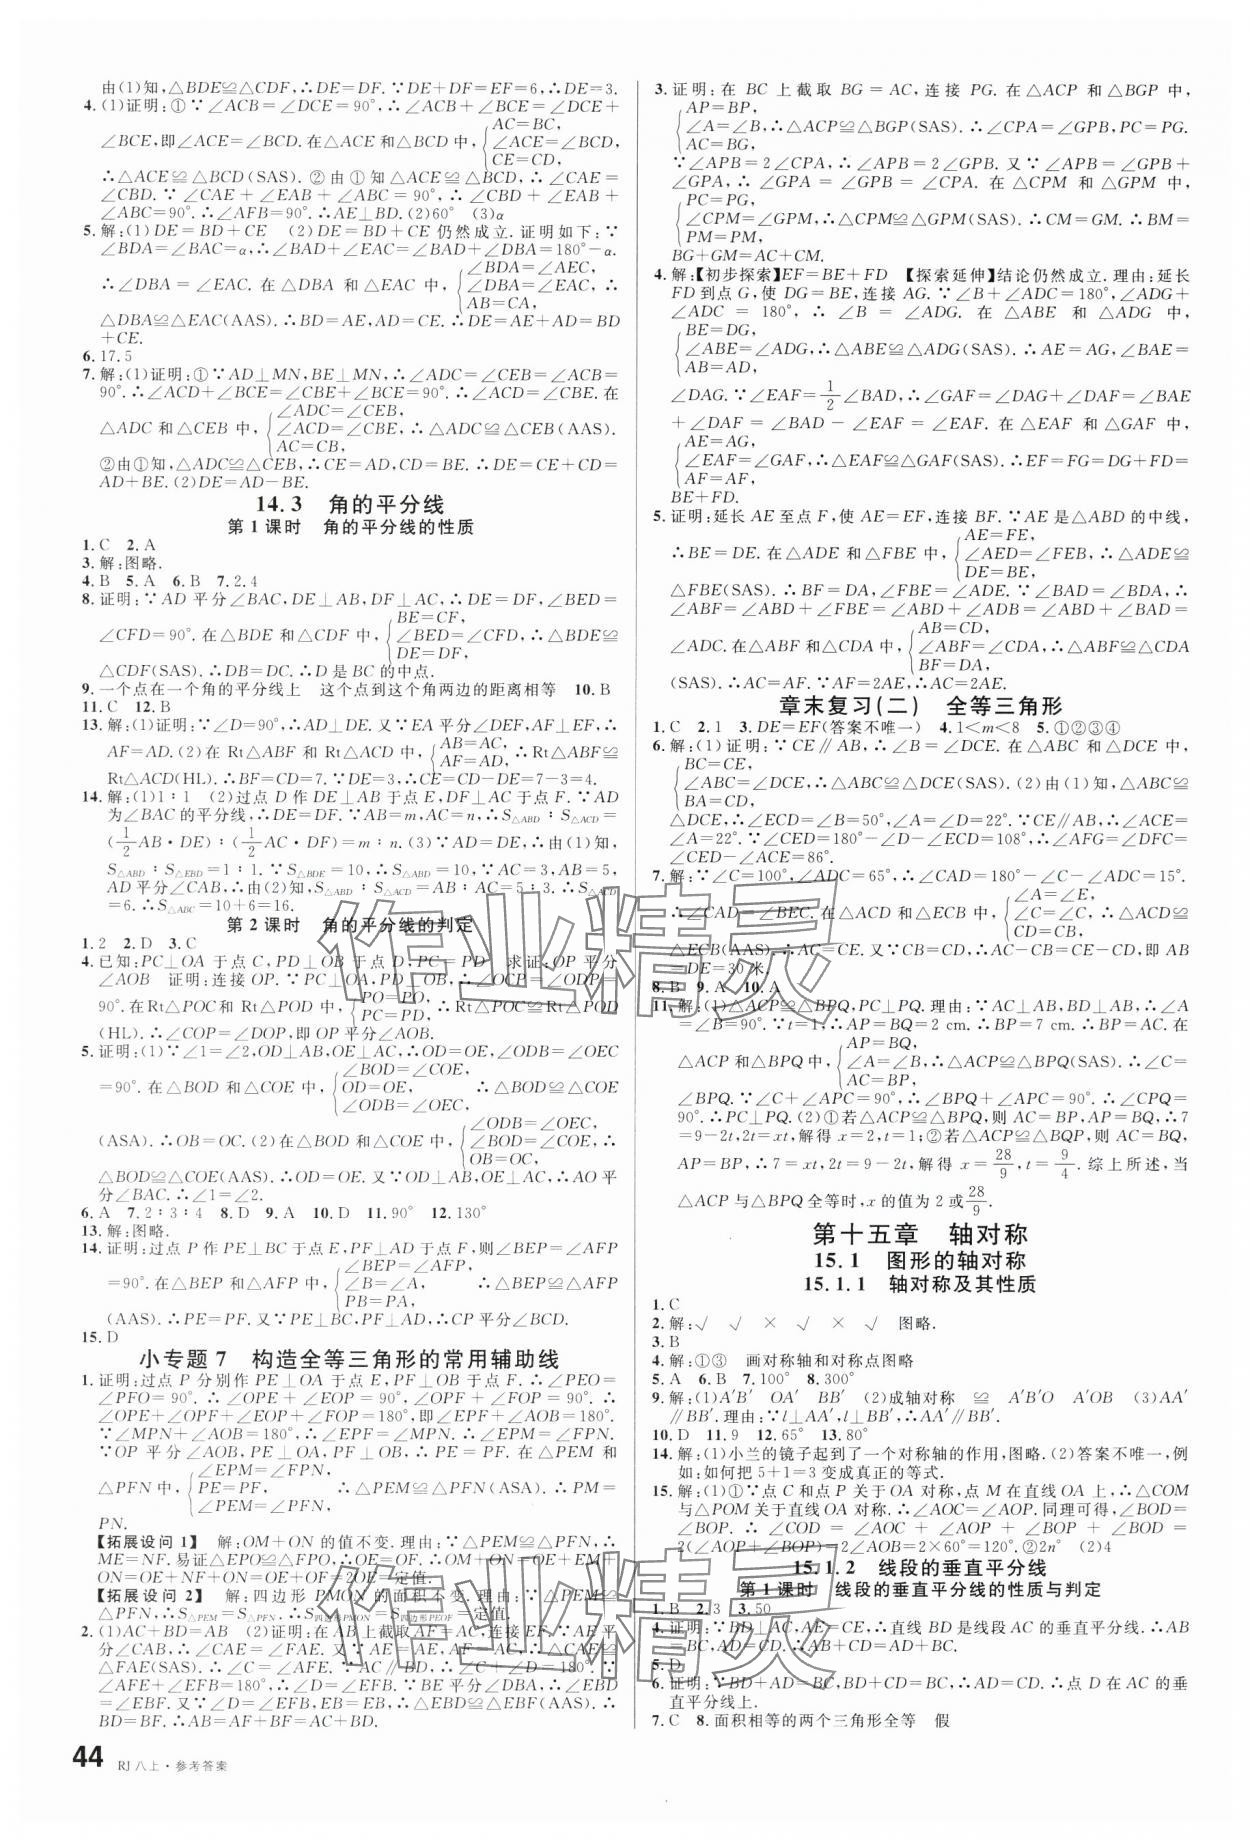 由(1)知,△BDE≌△CDF,∴DE=DF.∵DE+DF=EF=6,∴DE=3.
4.(1)证明:①∵∠ACB=∠DCE=90°,∴∠ACB+∠BCE=∠DCE+
∠BCE,即∠ACE=∠BCD.在△ACE和△BCD中,{AC=BC,
∠ACE=∠BCD,
CE=CD,
∴△ACE≌△BCD(SAS).②由①知△ACE≌△BCD,∴∠CAE=
∠CBD.∵∠CAE+∠EAB+∠ABC=90°,∴∠CBD+∠EAB+
∠ABC=90°.∴∠AFB=90°.∴AE⊥BD.(2)60° (3)α
5.解:(1)DE=BD+CE (2)DE=BD+CE仍然成立.证明如下:∵
∠BDA=∠BAC=α,∴∠BAD+∠EAC=∠BAD+∠DBA=180°-α.
∴∠DBA=∠EAC.在△DBA和△EAC中,{∠BDA=∠AEC,
∠DBA=∠EAC,
AB=CA,
∴
△DBA≌△EAC(AAS).∴BD=AE,AD=CE.∴DE=AE+AD=BD
+CE.
6.17.5
7.解:(1)证明:①∵AD⊥MN,BE⊥MN,∴∠ADC=∠CEB=∠ACB=
90°.∴∠ACD+∠BCE=∠CBE+∠BCE=90°.∴∠ACD=∠CBE.在
△ADC和△CEB中,{∠ADC=∠CEB,
∠ACD=∠CBE,
AC=CB,
∴△ADC≌△CEB(AAS).
②由①知,△ADC≌△CEB,∴CE=AD,CD=BE.∴DE=CE+CD=
AD+BE.(2)DE=AD-BE.
14.3 角的平分线
第1课时 角的平分线的性质
1.C 2.A
3.解:图略.
4.B 5.A 6.B 7.2.4
8.证明:∵AD平分∠BAC,DE⊥AB,DF⊥AC,∴DE=DF,∠BED=
∠CFD=90°.在△BDE和△CDF中,{BE=CF,
∠BED=∠CFD,
DE=DF,
∴△BDE≌
△CDF(SAS).∴DB=DC.∴D是BC的中点.
9.一个点在一个角的平分线上 这个点到这个角两边的距离相等 10.B
11.C 12.B
13.解:(1)证明:∵∠D=90°,∴AD⊥DE.又∵EA平分∠DEF,AF⊥EF,∴
AF=AD.(2)在Rt△ABF和Rt△ACD中,{AB=AC,
AF=AD,
∴Rt△ABF≌
Rt△ACD(HL).∴BF=CD=7.∵DE=3,∴CE=CD-DE=7-3=4.
14.解:(1)1∶1 (2)过点D作DE⊥AB于点E,DF⊥AC于点F.∵AD
为∠BAC的平分线,∴DE=DF.∵AB=m,AC=n,∴S△ABD∶S△ACD=
(1/2AB·DE)∶(1/2AC·DF)=m∶n.(3)∵AD=DE,∴由(1)知,
S△ABD∶S△EBD=1∶1.∵S△BDE=10,∴S△ABD=10,∵AC=3,AB=5,
AD平分∠CAB,∴由(2)知,S△ABD∶S△ACD=AB∶AC=5∶3.∴S△ACD
=6.∴S△ABC=10+6=16.
第2课时 角的平分线的判定
1.2 2.D 3.C
4.已知:PC⊥OA于点C,PD⊥OB于点D,PC=PD 求证:OP平分
∠AOB 证明:连接OP.∵PC⊥OA,PD⊥OB,∴∠OCP=∠ODP=
90°.在Rt△POC和Rt△POD中,{PO=PO,
PC=PD,
∴Rt△POC≌Rt△POD
(HL).∴∠COP=∠DOP,即OP平分∠AOB.
5.证明:(1)∵∠1=∠2,OD⊥AB,OE⊥AC,∴OD=OE,∠ODB=∠OEC
=90°.在△BOD和△COE中,{∠BOD=∠COE,
OD=OE,
∠ODB=∠OEC,
∴△BOD≌△COE
(ASA).∴OB=OC.(2)在△BOD和△COE中,{∠ODB=∠OEC,
∠BOD=∠COE,
OB=OC,
∴
△BOD≌△COE(AAS).∴OD=OE.又∵OD⊥AB,OE⊥AC,∴AO平
分∠BAC.∴∠1=∠2.
6.A 7.2∶3∶4 8.D 9.A 10.D 11.90° 12.130°
13.解:图略.
14.证明:过点P作PE⊥BC于点E,PF⊥AD于点F,则∠BEP=∠AFP
=90°.在△BEP和△AFP中,{∠BEP=∠AFP,
∠B=∠A,
PB=PA,
∴△BEP≌△AFP
(AAS).∴PE=PF.又∵PE⊥BC,PF⊥AD,∴CP平分∠BCD.
15.D
小专题7 构造全等三角形的常用辅助线
1.证明:过点P分别作PE⊥OA于点E,PF⊥OB于点F.∴∠PEO=
∠PFO=90°.∴∠OPE+∠EOP=90°,∠OPF+∠FOP=90°.∴
∠OPE+∠OPF+∠EOP+∠FOP=180°,即∠EPF+∠AOB=180°.
∵∠MPN+∠AOB=180°,∴∠EPF=∠MPN.∴∠EPM=∠FPN.
∵OP平分∠AOB,PE⊥OA,PF⊥OB,∴PE=PF.在△PEM和
△PFN中,{∠EPM=∠FPN,
PE=PF,
∠PEM=∠PFN,
∴△PEM≌△PFN(ASA).∴PM=
PN.
【拓展设问1】 解:OM+ON的值不变.理由:∵△PEM≌△PFN,∴
ME=NF.易证△EPO≌△FPO,∴OE=OF.∴OM+ON=OE+EM+
ON=OE+NF+ON=OE+OF=2OE=定值.
【拓展设问2】 解:四边形PMON的面积不变.理由:∵△PEM≌
△PFN,∴S△PEM=S△PFN.∴S四边形PMON=S四边形PEOF=定值.
2.(1)AC+BD=AB (2)证明:在AB上截取AF=AC,连接EF.∵AE平
分∠CAB,∴∠CAE=∠FAE.又∵AE=AE,AF=AC,∴△CAE≌
△FAE(SAS).∴∠C=∠AFE.又∵AC∥BD,∴∠C+∠D=180°.∵
∠AFE+∠EFB=180°,∴∠D=∠EFB.∵BE平分∠DBA,∴∠EBD
=∠EBF.又∵∠D=∠EFB,EB=EB,∴△EBD≌△EBF(AAS).∴
BD=BF.∴AB=AF+BF=AC+BD.
3.证明:在BC上截取BG=AC,连接PG.在△ACP和△BGP中,
{AP=BP,
∠A=∠B,
AC=BG,
∴△ACP≌△BGP(SAS).∴∠CPA=∠GPB,PC=PG.
∵∠APB=2∠CPA,∴∠APB=2∠GPB.又∵∠APB=∠GPB+
∠GPA,∴∠GPA=∠GPB=∠CPA.在△CPM和△GPM中,
{PC=PG,
∠CPM=∠GPM,
PM=PM,
∴△CPM≌△GPM(SAS).∴CM=GM.∴BM=
BG+GM=AC+CM.
4.解:【初步探索】EF=BE+FD 【探索延伸】结论仍然成立.理由:延长
FD到点G,使DG=BE,连接AG.∵∠B+∠ADC=180°,∠ADG+
∠ADC=180°,∴∠B=∠ADG.在△ABE和△ADG中,
{BE=DG,
∠ABE=∠ADG,
AB=AD,
∴△ABE≌△ADG(SAS).∴AE=AG,∠BAE=
∠DAG.∵∠EAF=1/2∠BAD,∴∠GAF=∠DAG+∠DAF=∠BAE
+∠DAF=∠BAD-∠EAF=∠EAF.在△EAF和△GAF中,
{AE=AG,
∠EAF=∠GAF,
AF=AF,
∴△EAF≌△GAF(SAS).∴EF=FG=DG+FD=
BE+FD.
5.证明:延长AE至点F,使AE=EF,连接BF.∵AE是△ABD的中线,
∴BE=DE.在△ADE和△FBE中,{AE=FE,
∠AED=∠FEB,
DE=BE,
∴△ADE≌
△FBE(SAS).∴BF=DA,∠FBE=∠ADE.∵∠BAD=∠BDA,∴
∠ABF=∠ABD+∠FBE=∠ABD+∠ADB=∠ABD+∠BAD=
∠ADC.在△ABF和△CDA中,{AB=CD,
∠ABF=∠CDA,
BF=DA,
∴△ABF≌△CDA
(SAS).∴AC=AF.∵AF=2AE,∴AC=2AE.
章末复习(二) 全等三角形
1.C 2.1 3.DE=EF(答案不唯一) 4.1<m<8 5.①②③④
6.解:(1)证明:∵CE∥AB,∴∠B=∠DCE.在△ABC和△DCE中,
{BC=CE,
∠ABC=∠DCE,
BA=CD,
∴△ABC≌△DCE(SAS).(2)由(1)知,△ABC≌
△DCE,∴∠ECD=∠B=50°,∠A=∠D=22°.∵CE∥AB,∴∠ACE=
∠A=22°.∵∠CED=180°-∠D-∠ECD=108°,∴∠AFG=∠DFC=
∠CED-∠ACE=86°.
7.解:∵∠C=100°,∠ADC=65°,∴∠CAD=180°-∠C-∠ADC=15°.
∴∠CAD=∠BEC.在△CAD和△CEB中,{∠A=∠E,
∠C=∠C,
CD=CB,
∴△CAD≌
△ECB(AAS).∴AC=CE.又∵CB=CD,∴AC-CB=CE-CD,即AB
=DE=30米.
8.B 9.A 10.A
11.解:(1)△ACP≌△BPQ,PC⊥PQ.理由:∵AC⊥AB,BD⊥AB,∴∠A
=∠B=90°.∵t=1,∴AP=BQ=2 cm.∴BP=7 cm.∴BP=AC.在
△ACP和△BPQ中,{AP=BQ,
∠A=∠B,
AC=BP,
∴△ACP≌△BPQ(SAS).∴∠C=
∠BPQ.∵∠C+∠APC=90°,∴∠BPQ+∠APC=90°.∴∠CPQ=
90°.∴PC⊥PQ.(2)①若△ACP≌△BPQ,则AC=BP,AP=BQ,∴7
=9-2t,2t=xt,解得x=2,t=1;②若△ACP≌△BQP,则AC=BQ,
AP=BP,∴7=xt,2t=9-2t,解得x=28/9,t=9/4.综上所述,当
△ACP与△BPQ全等时,x的值为2或28/9.
第十五章 轴对称
15.1 图形的轴对称
15.1.1 轴对称及其性质
1.C
2.解:√ √ × √ × √ 图略.
3.B
4.解:①③ 画对称轴和对称点图略
5.A 6.B 7.100° 8.300°
9.解:(1)A′B′ OA′ BB′ (2)成轴对称 ≌ A′B′O A′OB (3)AA′
∥BB′.理由:∵l⊥AA′,l⊥BB′,∴AA′∥BB′.
10.D 11.9 12.65° 13.80°
14.解:(1)小兰的镜子起到了一个对称轴的作用,图略.(2)答案不唯一,例
如:如何把5+1=3变成真正的等式.
15.解:(1)①∵点C和点P关于OA对称,点M在直线OA上,∴△COM
与△POM关于直线OA对称.∴∠AOC=∠AOP.同理可得,∠BOD=
∠BOP.∴∠COD=∠AOC+∠AOP+∠BOP+∠BOD=
2(∠AOP+∠BOP)=2∠AOB=2×60°=120°.②2n° (2)4
15.1.2 线段的垂直平分线
第1课时 线段的垂直平分线的性质与判定
1.B 2.3 3.50
4.证明:∵BD⊥AC,AE=CE,∴直线BD是线段AC的垂直平分线.∴AB
=BC,AD=CD.∴AB+CD=AD+BC.
5.D
6.证明:∵BD+AD=BC,BD+CD=BC,∴AD=CD.∴点D在AC的垂
直平分线上.
7.C 8.面积相等的两个三角形全等 假
44 RJ八上·参考答案
作业精灵
作业精灵